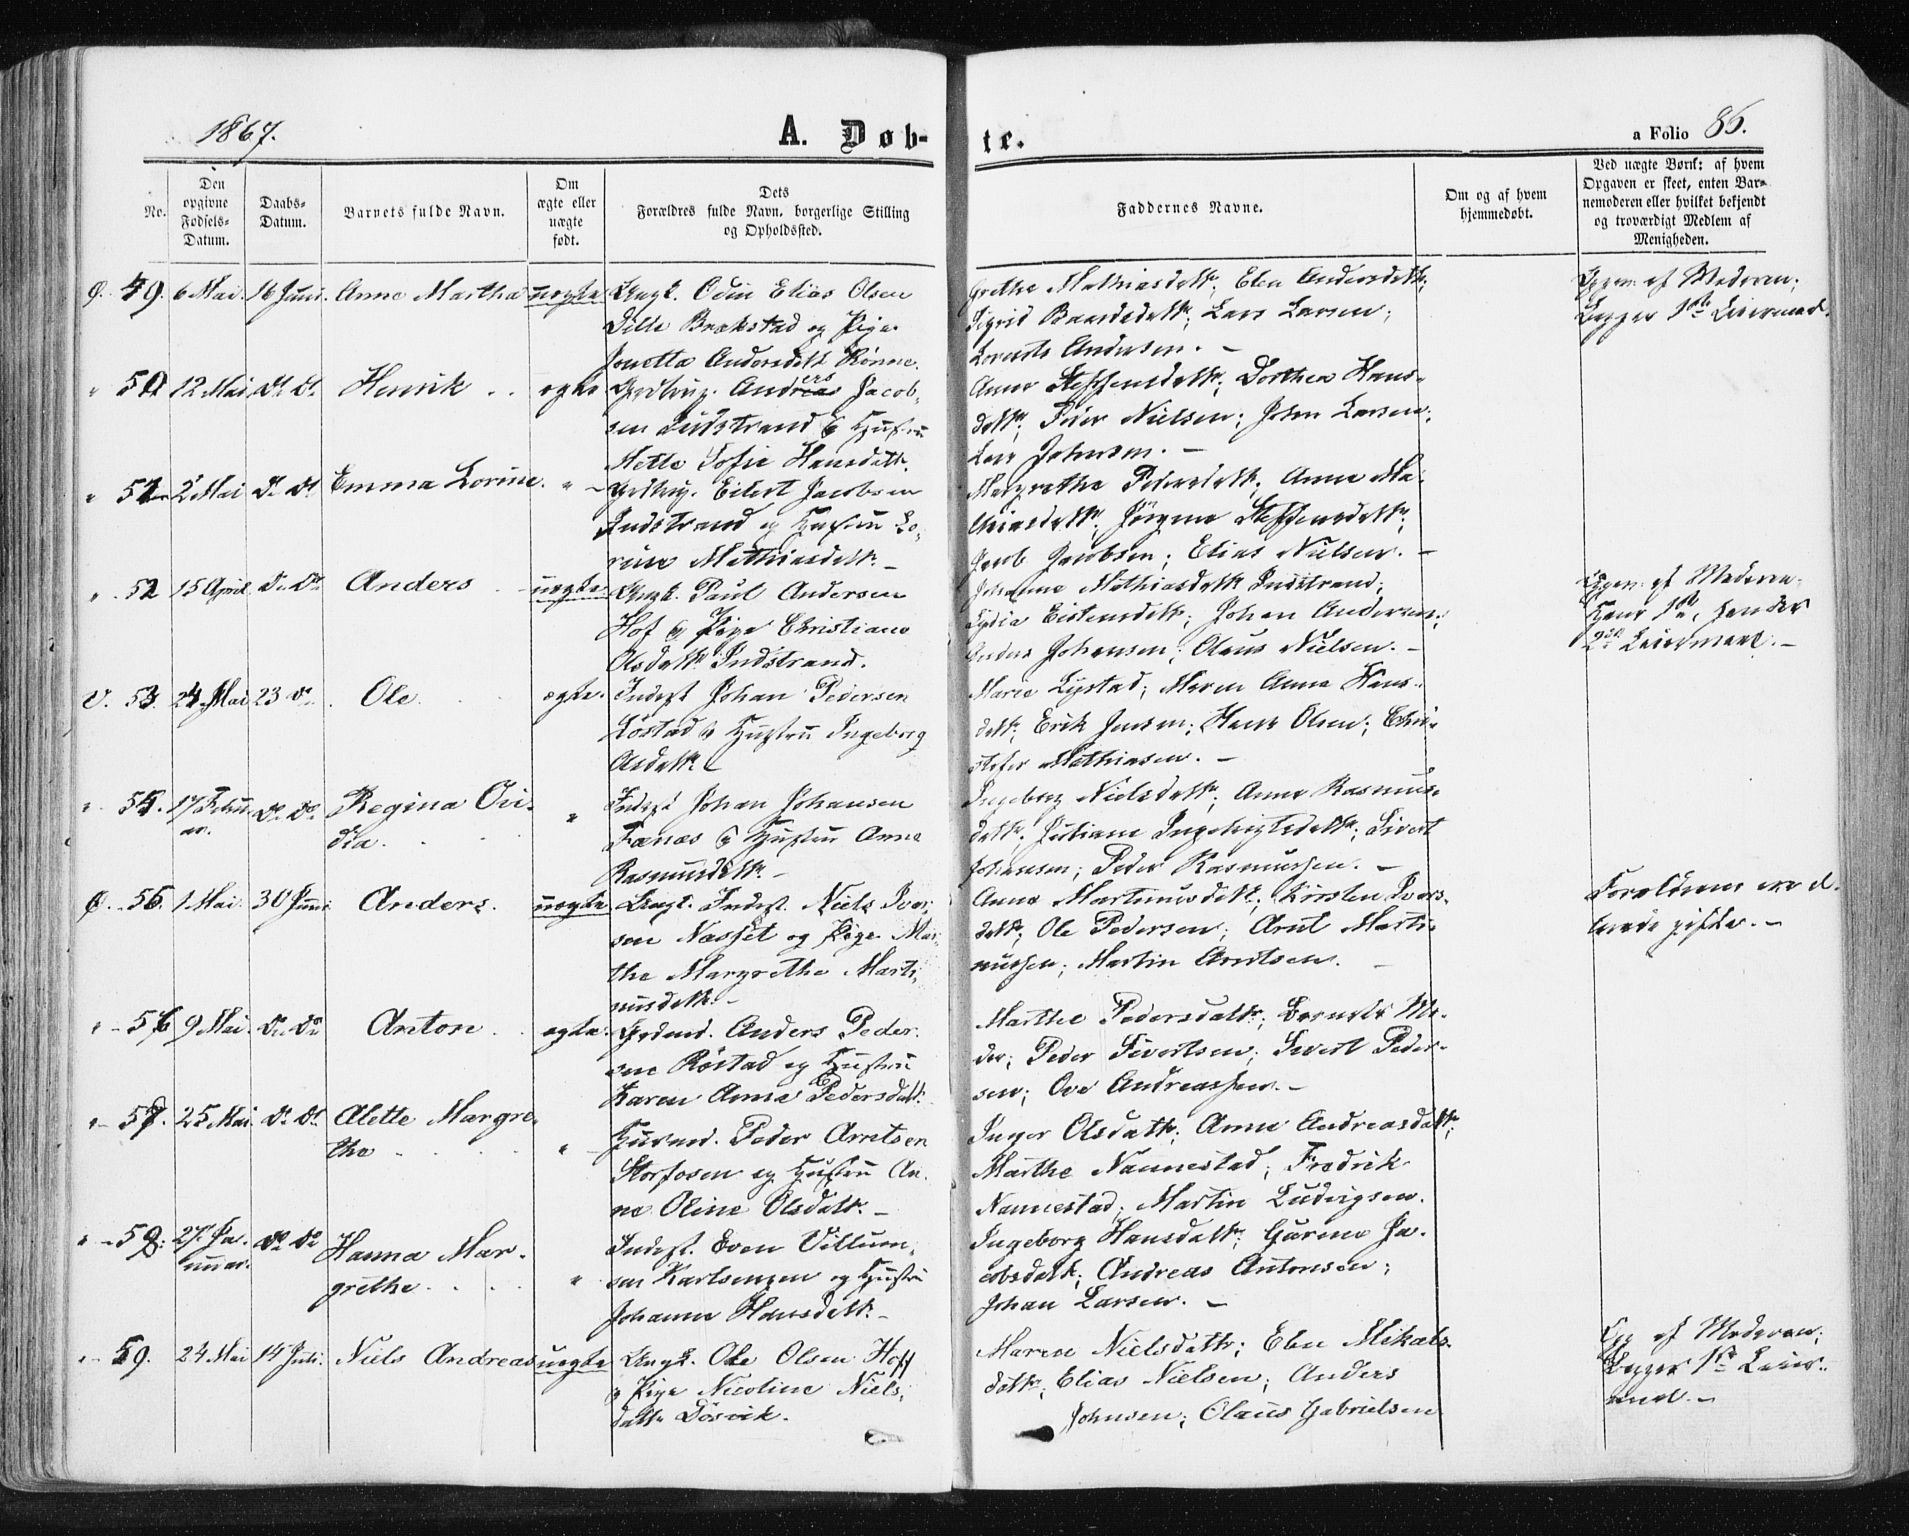 1867.
A. Døb-
te.
a Folio 86.
No.
Den
opgivne
Fødsels-
Datum.
Daabs-
Datum.
Barnets fulde Navn.
Om
ægte eller
uægte
født.
Dets
Forældres fulde Navn, borgerlige Stilling
og Opholdssted.
Faddernes Navne.
Om og af hvem
hjemmedøbt.
Ved uægte Børn: af hvem
Opgaven er skeet, enten Bar-
nemoderen eller hvilket bekjendt
og troværdigt Medlem af
Menigheden.
Ø. 49. 6 Mai. 16 Juni. Anne Martha uægte Ungk. Odin Elias Olsen
Brækstad og Pige
Jonetta Andersdatt. Rønne.
Grethe Mathiasdatt.; Elen Andersdatt.;
Sigrid Baardsdatt.; Lars Larsen;
Lorents Andersen. -
Opgiv. af Moderen;
Begges 1ste Leiermaal.
" 50 12 Mai Do Do Henrik . . ægte Andreas ers Jacob-
sen Indstrand & Hustru
Mette Sofie Hansdatt.
Anne Steffensdatt.; Dorthea Hans-
datt.; Peder Nielsen; Johan Larsen;
Lars Johansen. -
" 51 2 Mai Do Do Emma Lorine. " - Eilert Jacobsen
Indstrand og Hustru Lo-
rine Mathiasdatt. -
Margrethe Pedersdatt.; Anne Ma-
thiasdatt.; Jørgine Steffensdatt.;
Jacob Jacobsen; Elias Nielsen. -
" 52 15 April Do Do Anders uægte. Ungk. Paul Andersen
Hof & Pige Christiane
Olsdatt. Indstrand.
Johanne Mathiasdatt. Indstrand;
Lydia Eistensdatt.; Johan Andersen;
Anders Johansen; Olaus Nielsen. -
Opgiv. af Moderen.
Hans 1ste, hendes
2det Leiermaal. -
V. 53. 24. Mai 23 do. Ole ægte. Inderst Johan Pedersen
Løstad & Hustru Ingeborg
Olsdatt.
Marie Lystad; Maren Anna Hans-
datt.; Erik Jensen; Hans Olsen; Chri-
stofer Mathiasen. -
" 54. 17 Februar. Do Do. Regina Ovi-
dia. " Inderst Johan Johansen
Fanæs & Hustru Anne
Rasmusdatt. -
Ingeborg Nielsdatt.; Anne Rasmus-
datt.; Juliane Ingebrigtsdatt.; Sivert
Johansen; Peder Rasmussen. -
Ø. 55. 1 Mai. 30 Juni. Anders. uægte. Ungk. Inderst. Niels Iver-
sen Næsset og Pige Mar-
the Margrethe Marti-
nusdatt. -
Anne Martinusdatt.; Kirsten Ivers-
datt.; Ole Pedersen; Arnt Marti-
nussen; Martin Arntsen. -
Forældrene ere al-
lerede gifte. -
" - 56 9 Mai. Do Do Anton . . ægte. Anders Peder-
sen Røstad og Hustru
Karen Anna Pedersdatt.
Marthe Pedersdatt.;
Peder Sivertsen; Sivert Peder-
sen; Ove Andreassen. -
" - 57. 25 Mai Do Do. Alette Margre-
the . . . . " - Husmd. Peder Arntsen
Storfosen og Hustru An-
ne Oline Olsdatt. -
Inger Olsdatt.; Anne Andreasdatt.;
Marthe Nannestad; Fredrik
Nannestad; Martin Ludvigsen.
" - 58. 27 Ja-
nuar. Do Do Hanna Mar-
grethe . . . " Inderst. Even Villum-
sen Karlsengen og Hustru
Johanna Hansdatt. -
Ingeborg Hansdatt.; Gurine Ja-
cobsdatt.; Andreas Antonsen;
Johan Larsen. -
" - 59. 24 Mai 14 Juli. Niels Andreas uægte Ungk. Ole Olsen Hoff
& Pige Nicoline Niels-
datt. Døsvik.
Maren Nielsdatt.; Elen Mikals-
datt.; Elias Nielsen; Anders
Johnsen; Olaus Gabrielsen
Opg. af Moderen;
Begges 1ste Leier-
maal. -